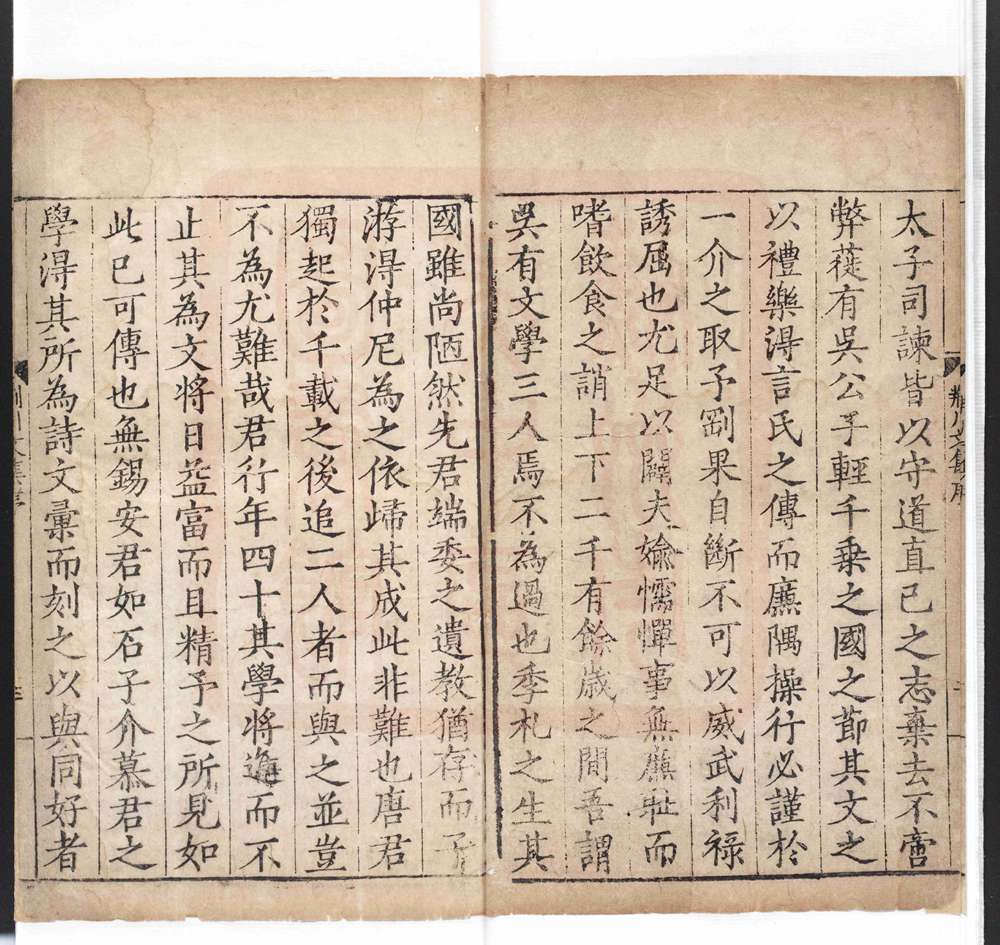 太子司諫皆以守道直己之志棄去不啻
弊蓰有吳公子輕千乗之國之節其文之
以禮樂得言氏之傳而廉隅操行必謹於
一介之取予劉果自斷不可以威武利祿
誘屈也尤足以關夫婾懦憚事無廉耻而
嗜飲食之誚上下二千有餘歲之間吾謂
吳有文學三人焉不為過也季札之生其
國雖尚陋然先君端委之遺教猶存而子
游得仲尼為之依歸其成此非難也唐君
獨起於千載之後追二人者而與之並豈
不為尤難哉君行年四十其學將進而不
止其為文將日益富而且精予之所見如
此已可傳也無錫安君如石子介慕君之
學得其所為詩文彙而刻之以與同好者
荊川文集序